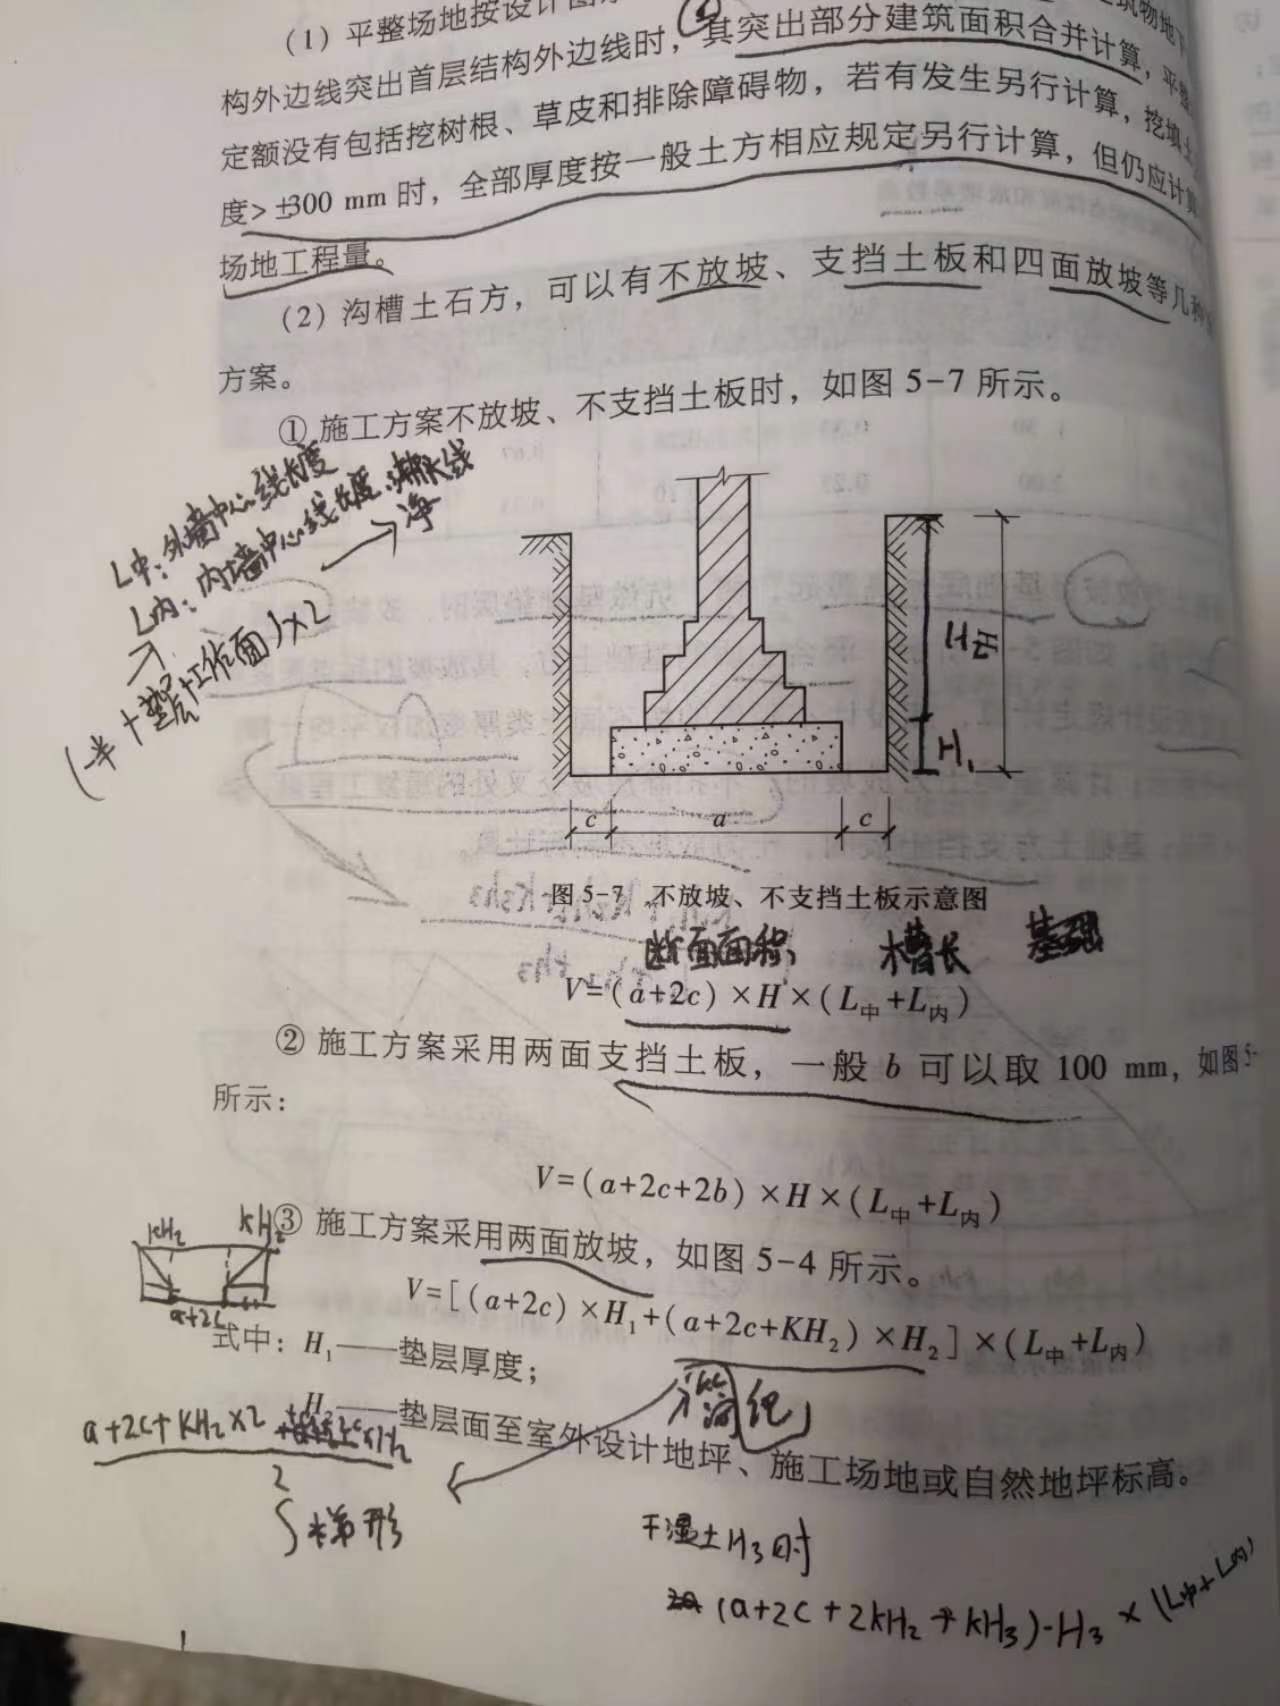 (1) 平整场地按设计图
构外边线突出首层结构外边线时，其突出部分建筑面积合并计算，平整
定额没有包括挖树根、草皮和排除障碍物，若有发生另行计算，挖填土
度>±300 mm 时，全部厚度按一般土方相应规定另行计算，但仍应计算
场地工程量。
(2) 沟槽土石方，可以有不放坡、支挡土板和四面放坡等几种
方案。
① 施工方案不放坡、不支挡土板时，如图 5-7 所示。
L中：外墙中心线长度
L内：内墙中心线长度
净
(半+垫层+工作面)×2
H
H₁
c a c
图 5-7 不放坡、不支挡土板示意图
断面面积 槽长 基础
V=(a+2c)×H×(L中+L内)
② 施工方案采用两面支挡土板，一般 b 可以取 100 mm，如图 5-
所示：
V=(a+2c+2b)×H×(L中+L内)
KH₂ KH₂
a+2c
③ 施工方案采用两面放坡，如图 5-4 所示。
V=[(a+2c)×H₁+(a+2c+KH₂)×H₂]×(L中+L内)
式中：H₁——垫层厚度；
H₂——垫层面至室外设计地坪、施工场地或自然地坪标高。
a+2c+KH₂×2
2
梯形
干湿土H₃时
(a+2c+2KH₂+KH₃)·H₃×(L中+L内)